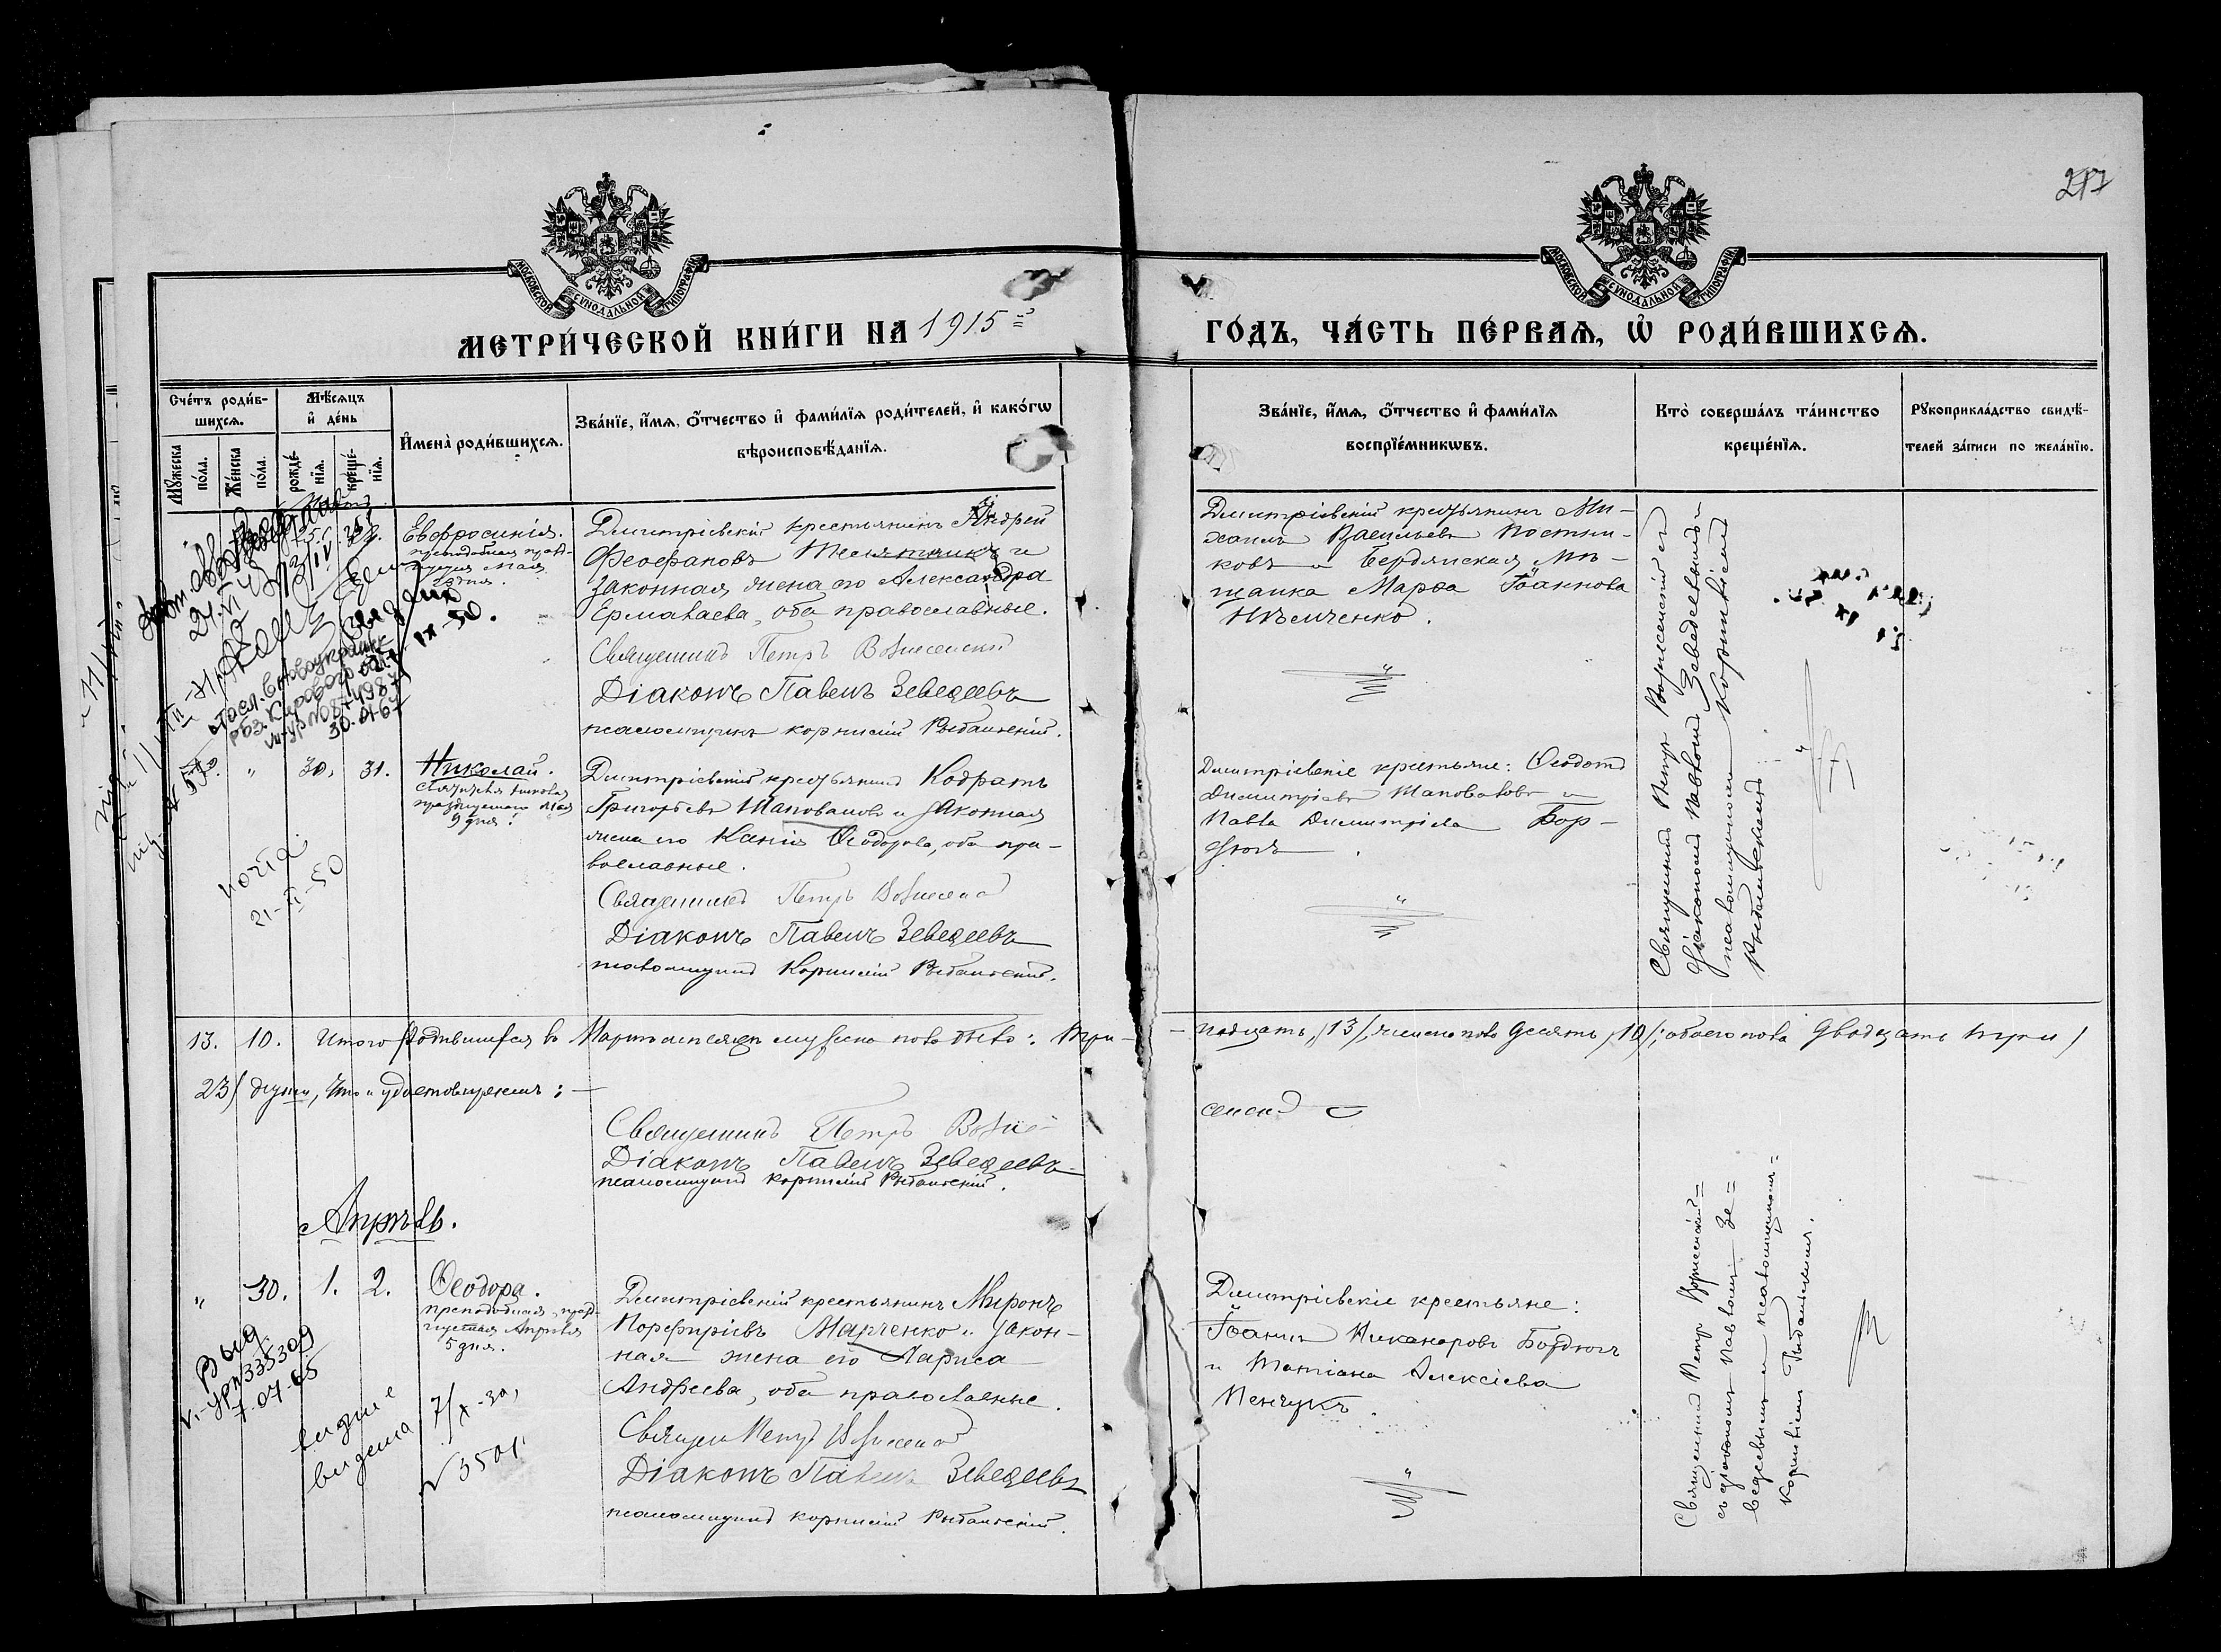 217
МОСКОВСКОЙ СУНОДАЛЬНОЙ ТИПОГРАФІИ
МОСКОВСКОЙ СУНОДАЛЬНОЙ ТИПОГРАФІИ
МЕТРИ́ЧЕСКОЙ КНИ́ГИ НА 1915
ГО́ДЪ, ЧА́СТЬ ПЕ́РВАѦ, Ѡ҆ РОДИ́ВШИХСѦ.
Сче́тъ роди́в-
шихсѧ.
Мꙋ́жеска по́ла.
Же́нска по́ла.
Мѣ́сѧцъ
и҆ де́нь
рожде́-
нїѧ.
креще́-
нїѧ.
И҆мена̀ роди́вшихсѧ.
Зва́нїе, и҆́мѧ, ѻ҆́тчество и҆ фами́лїѧ роди́телей, и҆ како́гѡ
вѣроисповѣ́данїѧ.
Зва́нїе, и҆́мѧ, ѻ҆́тчество и҆ фами́лїѧ
воспрїе́мникѡвъ.
Кто̀ соверша́лъ та́инство
креще́нїѧ.
Рꙋкоприкла́дство свидѣ́-
телей за́писи по жела́нїю.
Евфросинія.
преподобная празд-
Мая
Димитріевскій крестьянинъ Андрей
Феофановъ и
законная жена его Александра
Ермолаева, оба православные.
Священникъ Петръ Вознесенскій
Діаконъ Павелъ Зеведеевъ
псаломщикъ Корнилій Рыбальскій.
Димитріевскій крестьянинъ Ми-
хаилъ Васильевъ Постни-
ковъ и Бердянская мѣ-
щанка Марѳа Іоаннова
Нѣмченко.
Священникъ Петръ Вознесенскій съ
діакономъ Павломъ Зеведеевымъ
псаломщикомъ Корниліемъ
Рыбальскимъ
30.01.67
" 30. 31. Николай.
9 дня.
Димитріевскій крестьянинъ Кодратъ
Григорьевъ Шаповаловъ и законная
жена его Ксенія Ѳеодорова, оба пра-
вославные.
Священникъ Петръ Вознесенс
Діаконъ Павелъ Зеведеевъ
псаломщикъ Корнилій Рыбальскій.
Димитріевскіе крестьяне: Ѳеодотъ
Димитріевъ Шаповаловъ и
Павла Димитріева Бор-
дюгъ.
21-XI-50
13. 10. Итого родившихся въ Мартѣ мѣсяцѣ мужеска пола было: три-
надцать, /13/, женска пола десять /10/; обоего пола двадцать три /
23/ души, что и удостовѣряемъ: —
Священникъ Петръ Возне-
сенскі
Діаконъ Павелъ Зеведеевъ
псаломщикъ Корнилій Рыбальскій.
Апрѣль.
" 30. 1. 2. Ѳеодора.
преподобная, празд-
Апрѣля
5 дня.
Димитріевскій крестьянинъ Миронъ
Порфиріевъ Марченко и закон-
ная жена его Лариса
Андреева, оба православные.
Священ Петръ Вознесенс
Діаконъ Павелъ Зеведеевъ
псаломщикъ Корнилій Рыбальскій.
Димитріевскіе крестьяне:
Іоаннъ Никаноровъ Бордюгъ
и Татіана Алексіева
Пенчукъ.
Священникъ Петръ Вознесенскій
съ діакономъ Павломъ Зе=
ведеевымъ и псаломщикомъ
Корниліемъ Рыбальскимъ.
7.04-65
7/X-30,
№ 3501